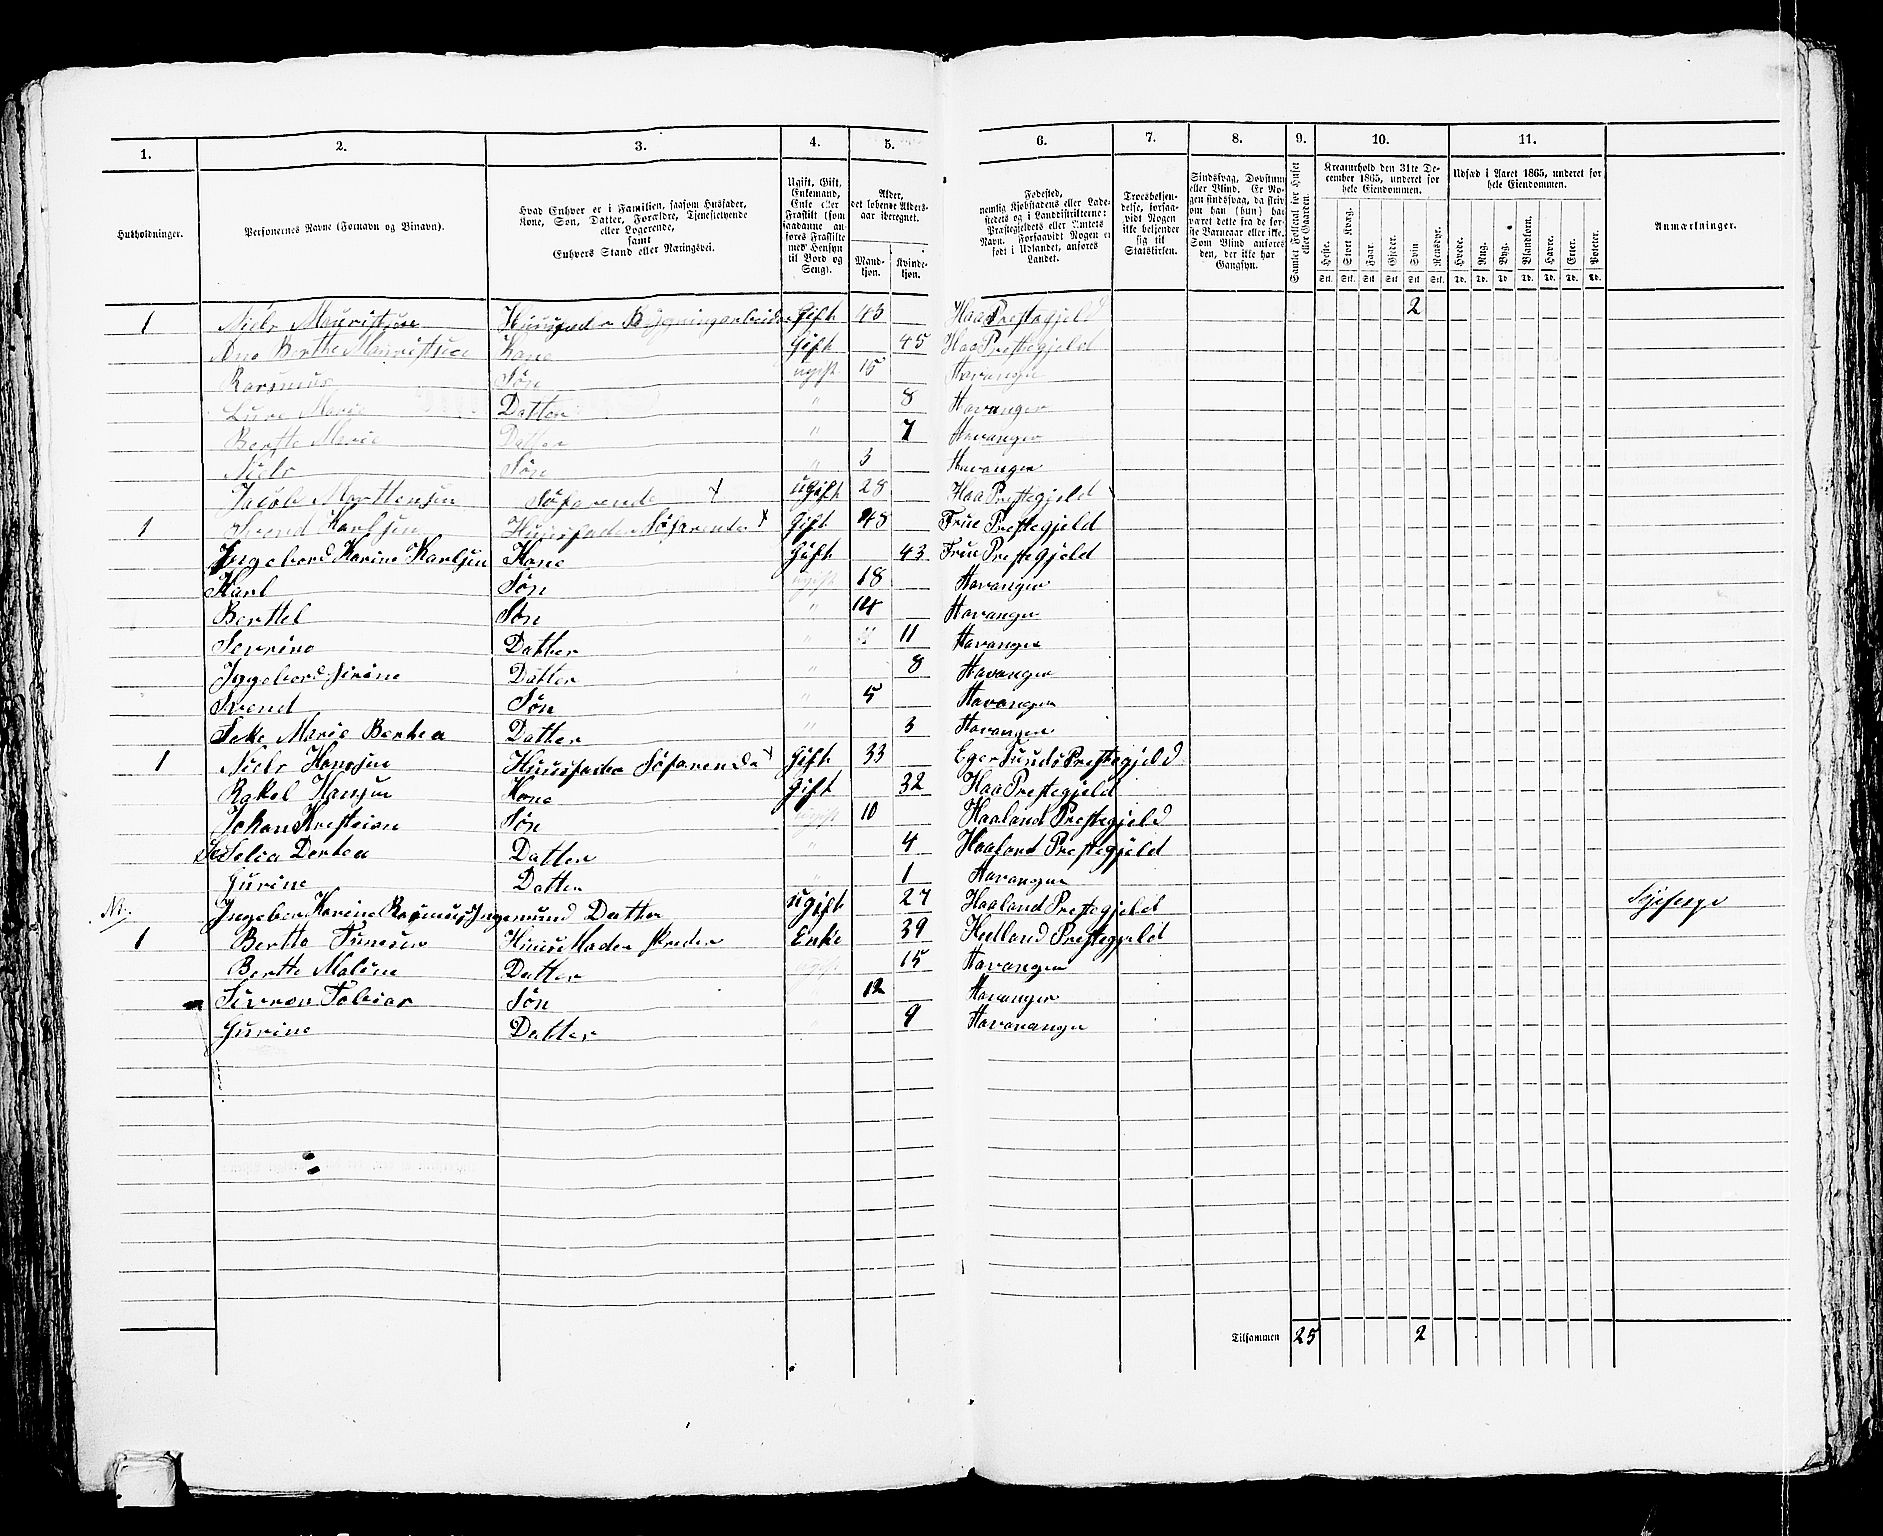 1. 2. 3. 4. 5. 6. 7. 8. 9. 10. 11.
Husholdninger.
Personernes Navne (Fornavn og Tilnavn).
Hvad Enhver er i Familien, saasom Husfader, Kone, Søn, Datter, Forældre, Tjenestetyende eller Logerende, samt Enhvers Stand eller Næringsvei.
Ugift, Gift, Enkemand, Enke eller Fraskilt (som saadanne anføres Fraskilte med Hensyn til Bord og Seng).
Alder, det løbende Alders-aar iberegnet.
Mandkjøn. Kvindekjøn.
Fødested, nemlig Kjøbstadens eller Ladestedets og i Landdistrikterne: Præstegjeldets eller Amtets Navn. Forsaavidt Nogen er født i Udlandet, anføres Landet.
Troesbekjendelse, forsaavidt Nogen ikke bekjender sig til Statskirken.
Sindssvag, Døvstum eller Blind. Er Nogen sindssvag, da skrives om han (hun) har været dette fra de første Barneaar eller ikke. Som Blind anføres den, der ikke har Gangsyn.
Samlet Folketal for Huset eller Gaarden.
Kreaturhold den 31te December 1865, underet for hele Eiendommen.
Heste. Stort Kvæg. Faar. Gjeder. Svin Rensdyr.
Stk. Stk. Stk. Stk. Stk. Stk.
Udsæd i Aaret 1865, underet for hele Eiendommen.
Hvede. Rug. Byg. Blandkorn. Havre. Erter. Poteter.
Td. Td. Td. Td. Td. Td. Td.
Anmærkninger.
1 Niels Mauritsen Huusfader Bygningarbeider Gift 43 Haa Prestegjeld 2
Ane Berthe Mauritsen Kone Gift 45 Haa Prestegjeld
Rasmus Søn ugift 15 Stavanger
Marie Datter " 8 Stavanger
Berthe Marie Datter " 7 Stavanger
Niels Søn " 3 Stavanger
Jacob Marttensen Søfarende x ugift 28 Haa Prestegjeld
1 Svend Karlsen Huusfader Søfarende x Gift 48 Frue Prestegjeld
Ingebord Karine Karlsen Kone Gift 43 Frue Prestegjeld
Karl Søn ugift 18 Stavanger
Berttel Søn " 14 Stavanger
Sevrine Datter " 11 Stavanger
Ingebord Sirine Datter " 8 Stavanger
Svend Søn " 5 Stavanger
Marie Bertea Datter " 3 Stavanger
1 Niels Hansen Huusfader Søfarende x Gift 33 Egersunds Prestegjeld
Rakel Hansen Kone Gift 32 Haa Prestegjeld
Johan Krestian Søn ugift 10 Haaland Prestegjeld
Selia Dortea Datter " 4 Haaland Prestegjeld
Gurine Datter " 1 Stavanger
Ingebor Karine Rasmus Ingemund Datter ugift 27 Haaland Prestegjeld
1 Berthe Huusmoder Enke 39 Hetland Prestegjeld
Berthe Maline Datter ugift 15 Stavanger
Tobias Søn 12 Stavanger
Gurine Datter " 9 Stavavanger
Tilsammen 25 2